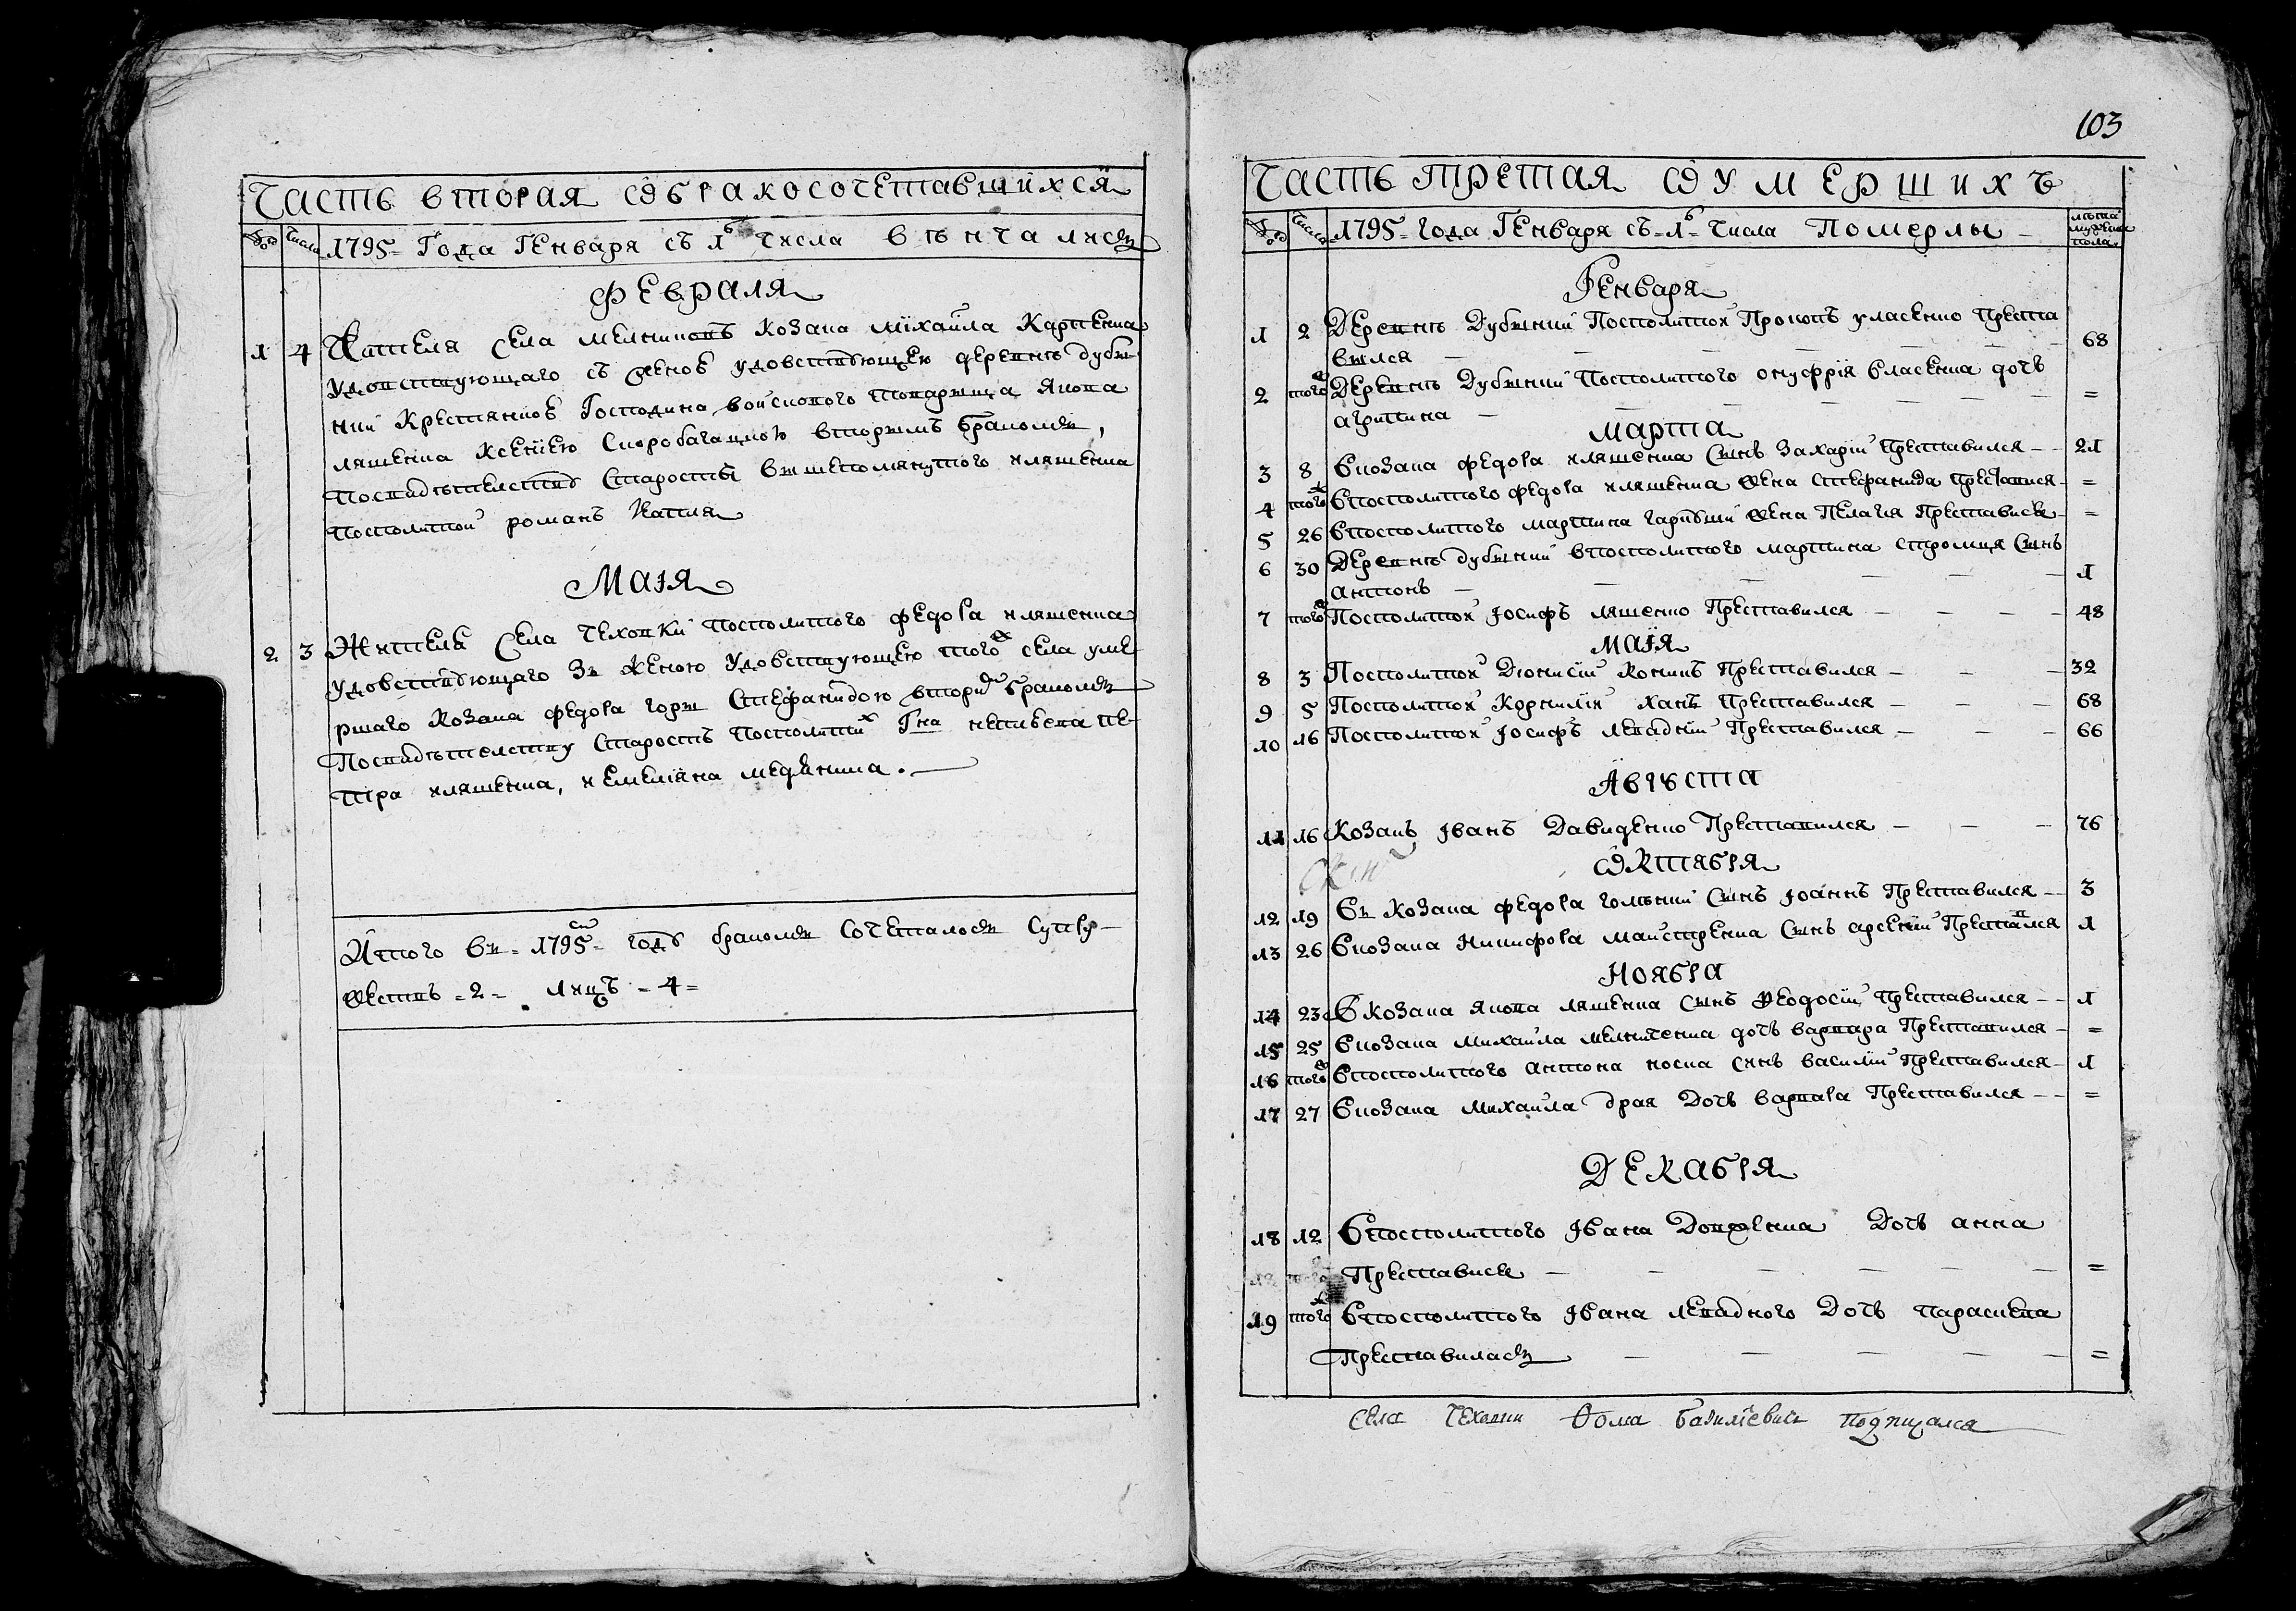 Часть вторая Ѡ бракосочетавшихся
№ числа 1795 Года Генваря съ 1г числа вѣнчались
Февраля
1 4 Жителя села Мелниковъ козака Михаила Карпенка
удовствующаго съ женою удовствующею деревнѣ Дубы-
нки крестянкою Господина войскового товарища Якова
ляшенка Ксениею Скоробагацкою вторымъ бракомъ,
По свидѣтелству старосты вышепомянутого иляшенка
посполитой романъ
Маія
2 3 Жителя села Чеховки посполитого федора иляшенка
удовствующаго зъ женою удовствующею того ж села уме-
ршаго козака федора Стефанидою вторим бракомъ
По свидѣтелству старостъ посполитих Гна пе-
тра иляшенка, и емелияна
Итого въ 1795 сем годѣ бракомъ сочеталось супру-
жествъ 2 лицъ 4
103
Часть третая Ѡ умершихъ
№ числа 1795 года Генваря съ 1г числа Померлы лѣта мужеска пола
Генваря
1 2 Деревнѣ Дубынки Посполитой Прокопъ уласенко Преста
вился 68
2 того ж Деревнѣ Дубынки Посполитого онуфрія власенка дочь
агрипина =
Марта
3 8 В козака федора иляшенка сынъ Захарій Преставился 21
4 того ж В посполитого федора иляшенка жена стефанида Преставися =
5 26 В посполитого мартина жена Пелагія Преставися =
6 30 Деревнѣ дубынки в посполитого мартина сынъ
антонъ 1
7 того ж Посполитой Іосифъ ляшенко Преставился 48
Маія
8 3 Посполитой Дионисій Преставился 32
9 5 Посполитой Корнилій Преставился 68
10 16 Посполитой Іосифъ левадній Преставился 66
Августа
11 16 Козакъ Іванъ Давиденко Преставился 76
Ѡктября
12 19 Въ козака федора сынъ Іоаннъ Преставился 3
13 26 В козака Никифора майстренка сынъ арсений Преставился 1
Ноября
14 23 В козака Якова ляшенка сынъ Феодосій Преставился 1
15 25 В козака Михаила Мелниченка дочь варвара Преставился =
16 того ж В посполитого антона носка синъ василій Преставился 1
17 27 В козака Михаила драя Дочь варвара Преставился =
Декабря
18 12 В посполитого Івана Довженка Дочь анна
Преставися =
19 того ж В посполитого Івана левадного Дочь параскева
Преставилась =
Села Чеховки Ѳома Базилевич Подписался